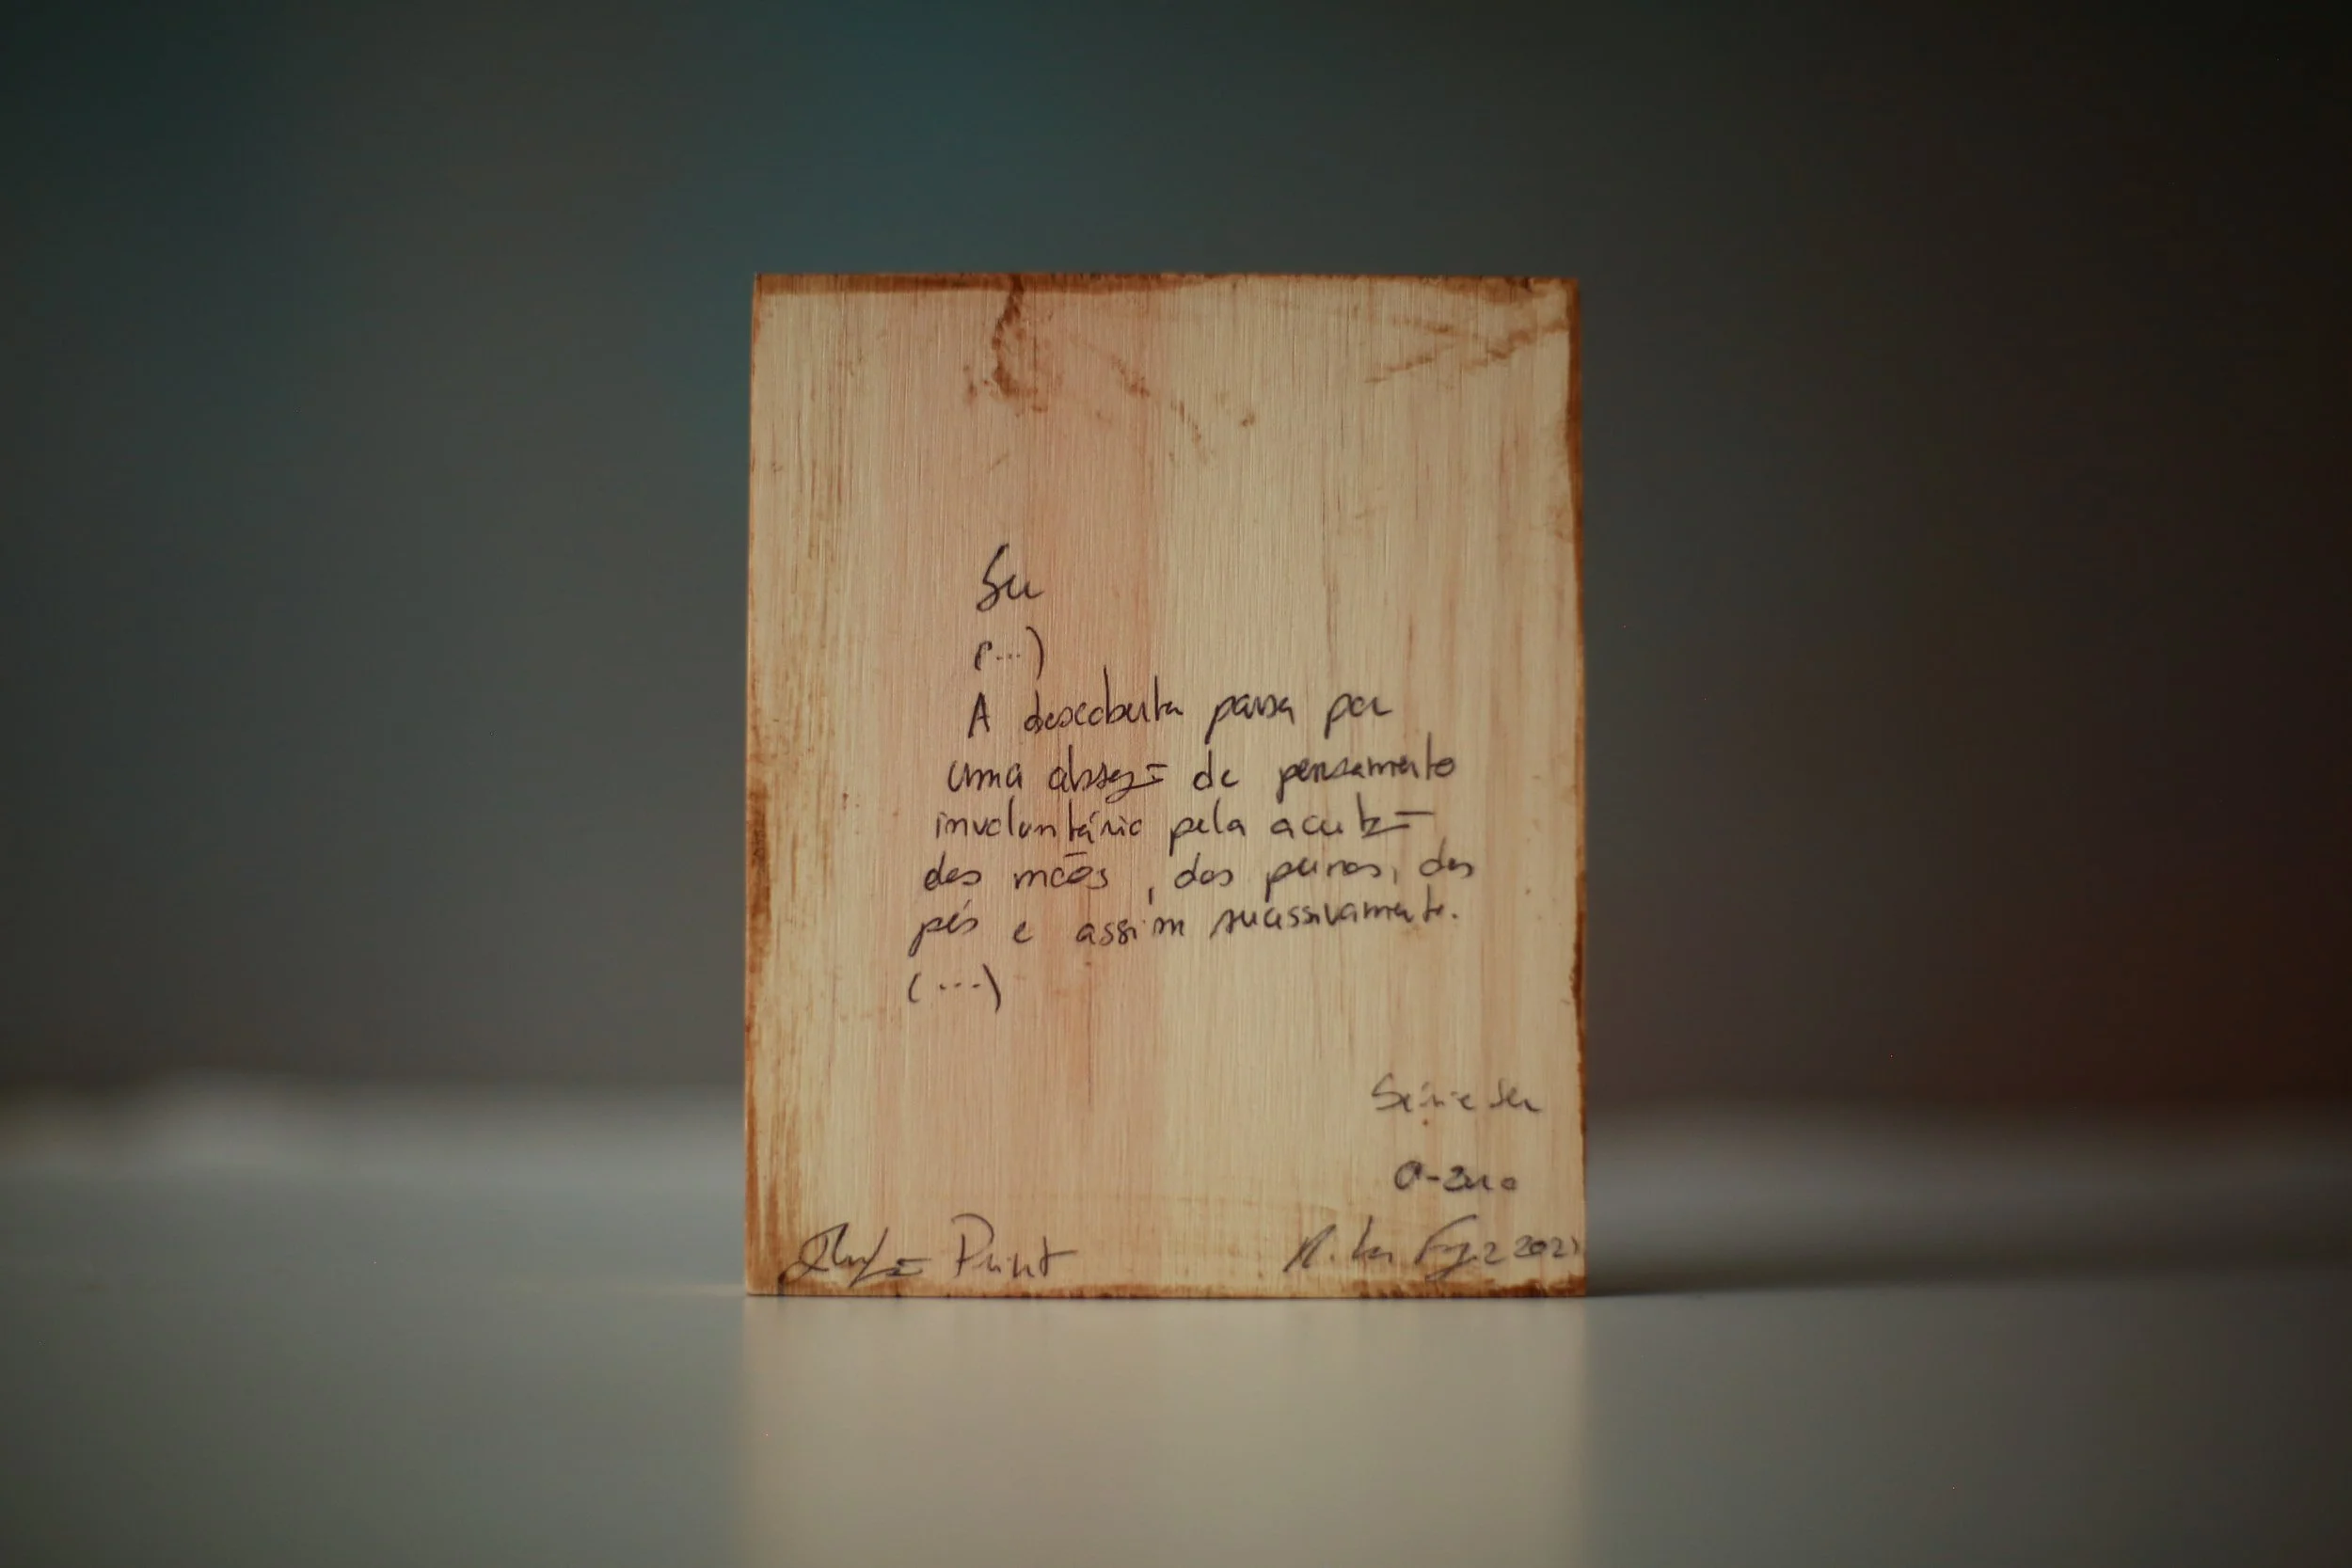 Ser
(...)
A descoberta passa por
uma de pensamento
involuntário pela
das mãos, das pernas, dos
pés e assim sucessivamente.
(...)
Série Ser
0-zero
Print
2021